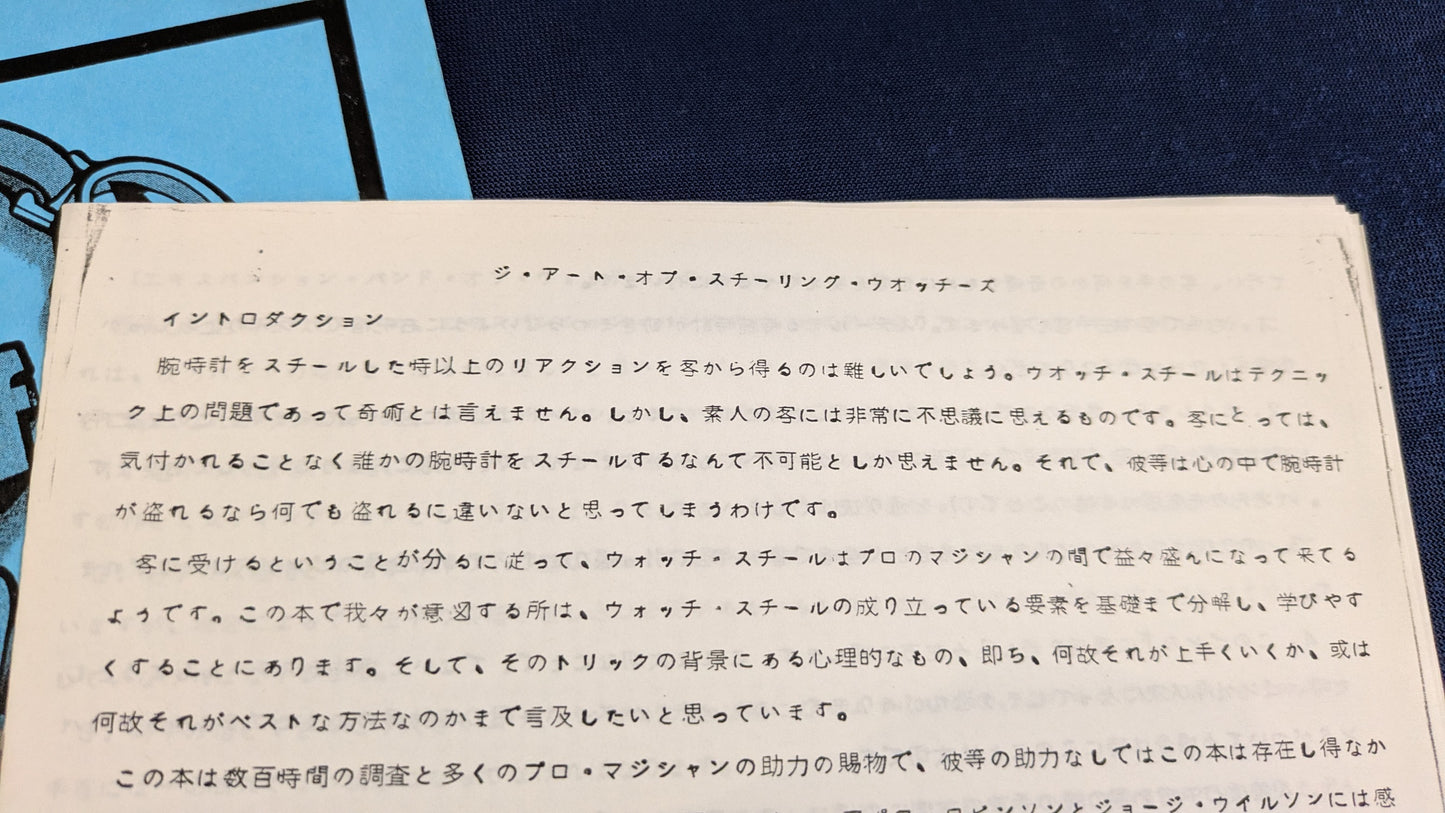 ジ・アート・オブ・スチーリング・ウオッチーズ
イントロダクション
腕時計をスチールした時以上のリアクションを客から得るのは難しいでしょう。ウオッチ・スチールはテクニッ
ク上の問題であって奇術とは言えません。しかし、素人の客には非常に不思議に思えるものです。客にとっては、
気付かれることなく誰かの腕時計をスチールするなんて不可能としか思えません。それで、彼等は心の中で腕時計
が盗れるなら何でも盗れるに違いないと思ってしまうわけです。
客に受けるということが分るに従って、ウォッチ・スチールはプロのマジシャンの間で益々盛んになって来てる
ようです。この本で我々が意図する所は、ウォッチ・スチールの成り立っている要素を基礎まで分解し、学びやす
くすることにあります。そして、そのトリックの背景にある心理的なもの、即ち、何故それが上手くいくか、或は
何故それがベストな方法なのかまで言及したいと思っています。
この本は数百時間の調査と多くのプロ・マジシャンの助力の賜物で、彼等の助力なしではこの本は存在し得なか
ロビンソンとジョージ・ウイルソンには感